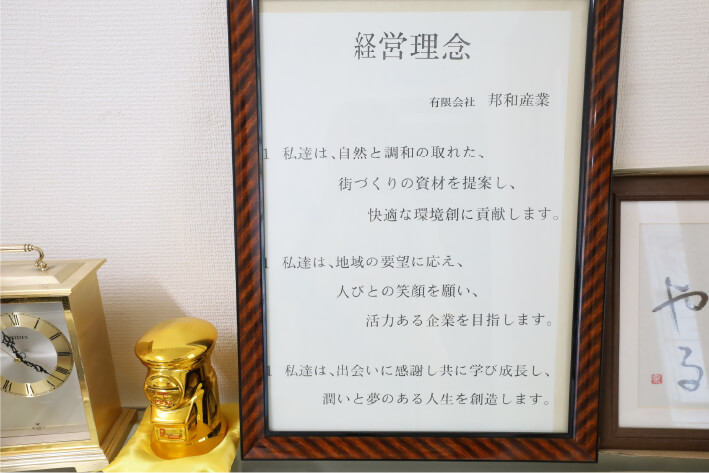 経営理念
有限会社 邦和産業
1 私達は、自然と調和の取れた、
街づくりの資材を提案し、
快適な環境創に貢献します。
1 私達は、地域の要望に応え、
人びとの笑顔を願い、
活力ある企業を目指します。
1 私達は、出会いに感謝し共に学び成長し、
潤いと夢のある人生を創造します。
やる